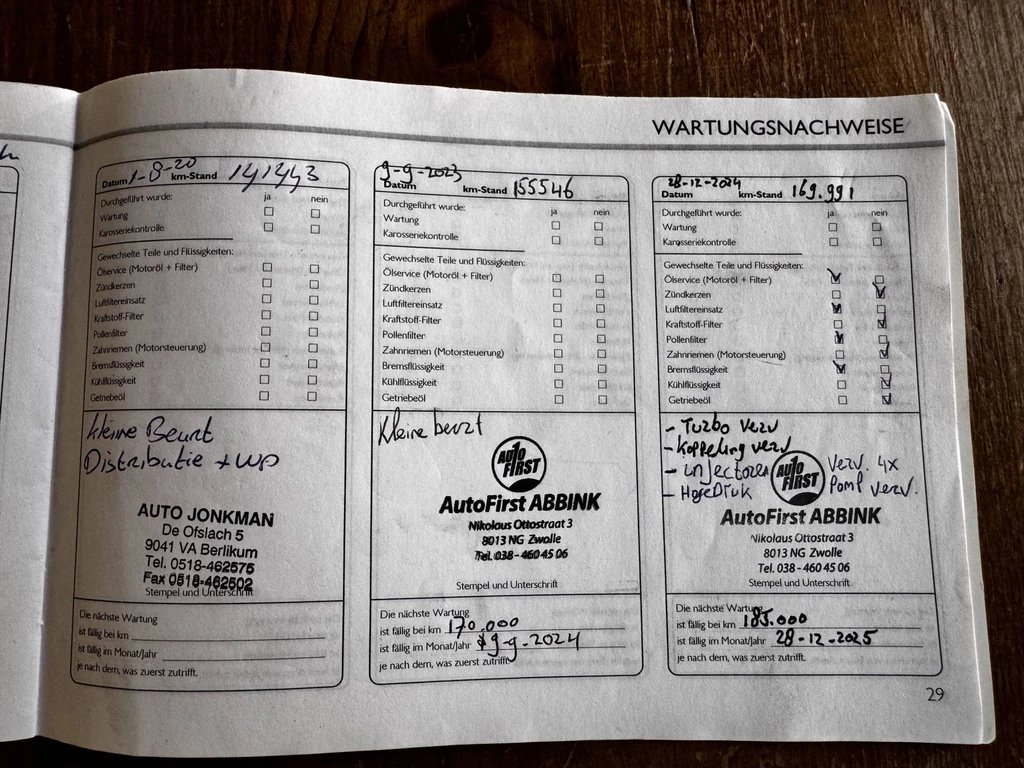 WARTUNGSNACHWEISE
Datum 1-8-20 km-Stand 141443
Durchgeführt wurde: ja nein
Wartung
Karosseriekontrolle
Gewechselte Teile und Flüssigkeiten:
Ölservice (Motoröl + Filter)
Zündkerzen
Luftfiltereinsatz
Kraftstoff-Filter
Pollenfilter
Zahnriemen (Motorsteuerung)
Bremsflüssigkeit
Kühlflüssigkeit
Getriebeöl
kleine Beurt
Distributie + WP
AUTO JONKMAN
De Ofslach 5
9041 VA Berlikum
Tel. 0518-462575
Fax 0518-462502
Stempel und Unterschrift
Die nächste Wartung
ist fällig bei km
ist fällig im Monat/Jahr
je nach dem, was zuerst zutrifft.
9-9-2023
Datum km-Stand 155546
Durchgeführt wurde: ja nein
Wartung
Karosseriekontrolle
Gewechselte Teile und Flüssigkeiten:
Ölservice (Motoröl + Filter)
Zündkerzen
Luftfiltereinsatz
Kraftstoff-Filter
Pollenfilter
Zahnriemen (Motorsteuerung)
Bremsflüssigkeit
Kühlflüssigkeit
Getriebeöl
Kleine beurt
AUTO FIRST
AutoFirst ABBINK
Nikolaus Ottostraat 3
8013 NG Zwolle
Tel. 038-460 45 06
Stempel und Unterschrift
Die nächste Wartung
ist fällig bei km 170.000
ist fällig im Monat/Jahr 9-9-2024
je nach dem, was zuerst zutrifft.
28-12-2024
Datum km-Stand 169.991
Durchgeführt wurde: ja nein
Wartung
Karosseriekontrolle
Gewechselte Teile und Flüssigkeiten:
Ölservice (Motoröl + Filter)
Zündkerzen
Luftfiltereinsatz
Kraftstoff-Filter
Pollenfilter
Zahnriemen (Motorsteuerung)
Bremsflüssigkeit
Kühlflüssigkeit
Getriebeöl
- Turbo verv
- Koppeling verv
- injectoren verv. 4x
- HogeDruk Pomp verv.
AUTO FIRST
AutoFirst ABBINK
Nikolaus Ottostraat 3
8013 NG Zwolle
Tel. 038-460 45 06
Stempel und Unterschrift
Die nächste Wartung
ist fällig bei km 185.000
ist fällig im Monat/Jahr 28-12-2025
je nach dem, was zuerst zutrifft.
29